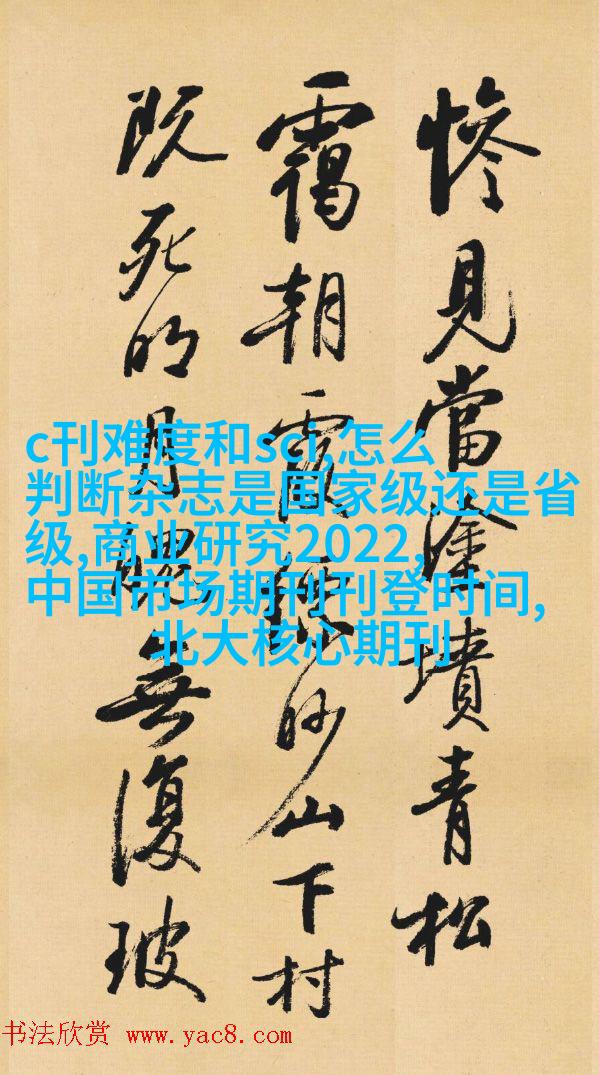 慘見當塗墳青松
靄朝霞縹眇山下村
既死明月魄無復玻
c刊难度和sci,怎么
判断杂志是国家级还是省
级,商业研究2022,
中国市场期刊刊登时间,
北大核心期刊
书法欣赏 www.yac8.com